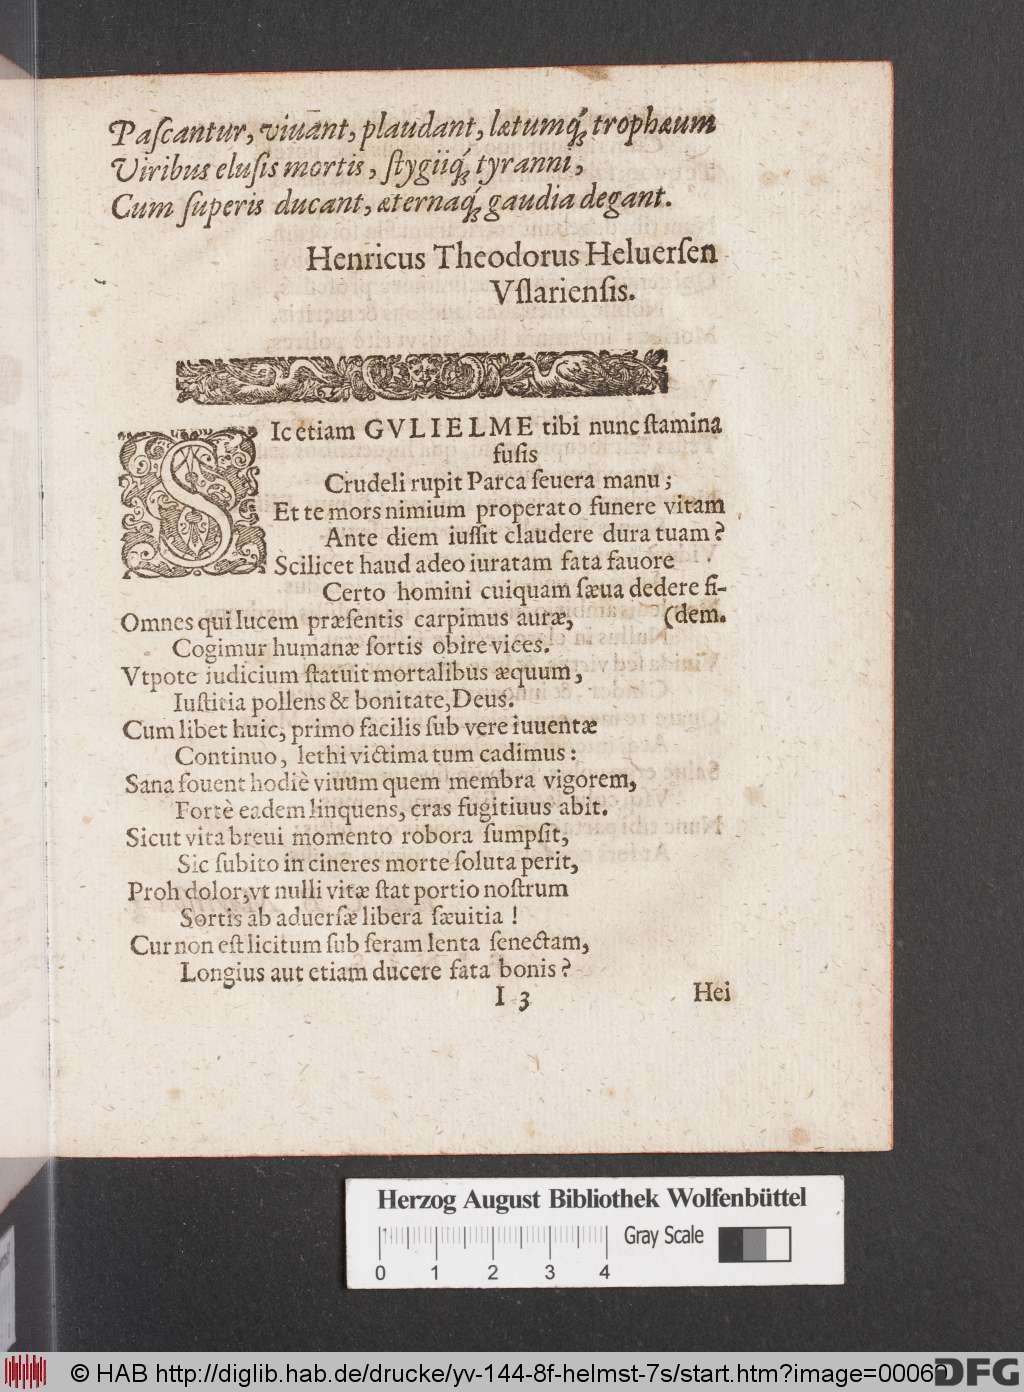 Paſcantur, viuant, plaudant, lætumq́ꝫ trophæum
Viribus eluſis mortis, ſtygiiq́ꝫ tyranni,
Cum ſuperis ducant, æternaq́ꝫ gaudia degant.
Henricus Theodorus Heluerſen
Vſlarienſis.
SIc etiam GVLIELME tibi nunc ſtamina
fuſis
Crudeli rupit Parca ſeuera manu;
Et te mors nimium properato funere vitam
Ante diem iuſſit claudere dura tuam?
Scilicet haud adeo iuratam fata fauore
Certo homini cuiquam ſæua dedere fi-
Omnes qui lucem præſentis carpimus auræ, (dem.
Cogimur humanæ ſortis obire vices.
Vtpote iudicium ſtatuit mortalibus æquum,
Iuſtitia pollens & bonitate, Deus.
Cum libet huic, primo facilis ſub vere iuuentæ
Continuo, lethi victima tum cadimus:
Sana fouent hodiè viuum quem membra vigorem,
Fortè eadem linquens, cras fugitiuus abit.
Sicut vita breui momento robora ſumpſit,
Sic ſubito in cineres morte ſoluta perit,
Proh dolor, vt nulli vitæ ſtat portio noſtrum
Sortis ab aduerſæ libera ſæuitia!
Cur non eſt licitum ſub ſeram lenta ſenectam,
Longius aut etiam ducere fata bonis?
I 3 Hei
Herzog August Bibliothek Wolfenbüttel
Gray Scale
0 1 2 3 4
© HAB http://diglib.hab.de/drucke/yv-144-8f-helmst-7s/start.htm?image=00069
DFG